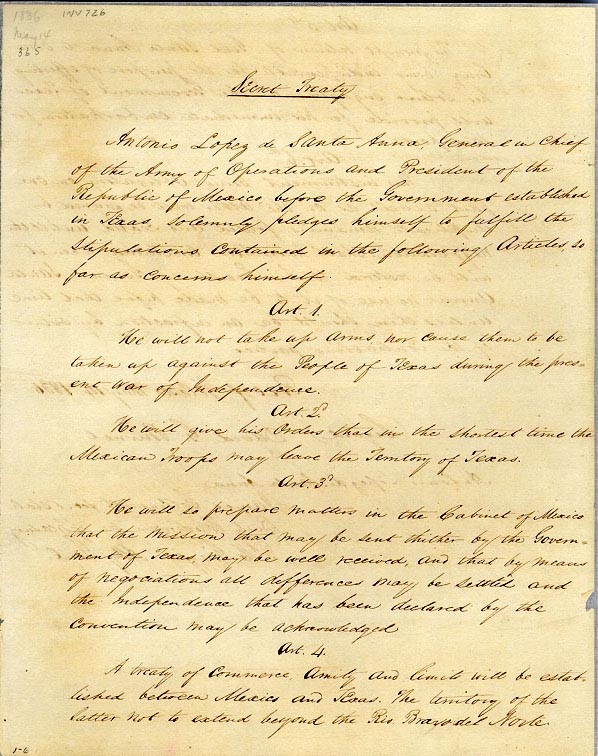 1836
May 14
365
INV 726
Secret Treaty
Antonio Lopez de Santa Anna, General in Chief
of the Army of Operations and President of the
Republic of Mexico, before the Government established
in Texas, solemnly pledges himself to fulfill the
Stipulations contained in the following Articles, so
far as concerns himself.
Art. 1.
He will not take up arms, nor cause them to be
taken up against the People of Texas during the pres-
ent War of Independence.
Art. 2d.
He will give his Orders that in the shortest time the
Mexican Troops may leave the Territory of Texas.
Art. 3d.
He will so prepare matters in the Cabinet of Mexico
that the Mission that may be sent thither by the Govern-
ment of Texas may be well received, and that by means
of negociations all differences may be settled and
the Independence that has been declared by the
Convention may be acknowledged
Art. 4.
A treaty of Commerce, Amity and limits will be estab-
lished between Mexico and Texas. The territory of the
latter not to extend beyond the Rio Bravo del Norte.
1-6